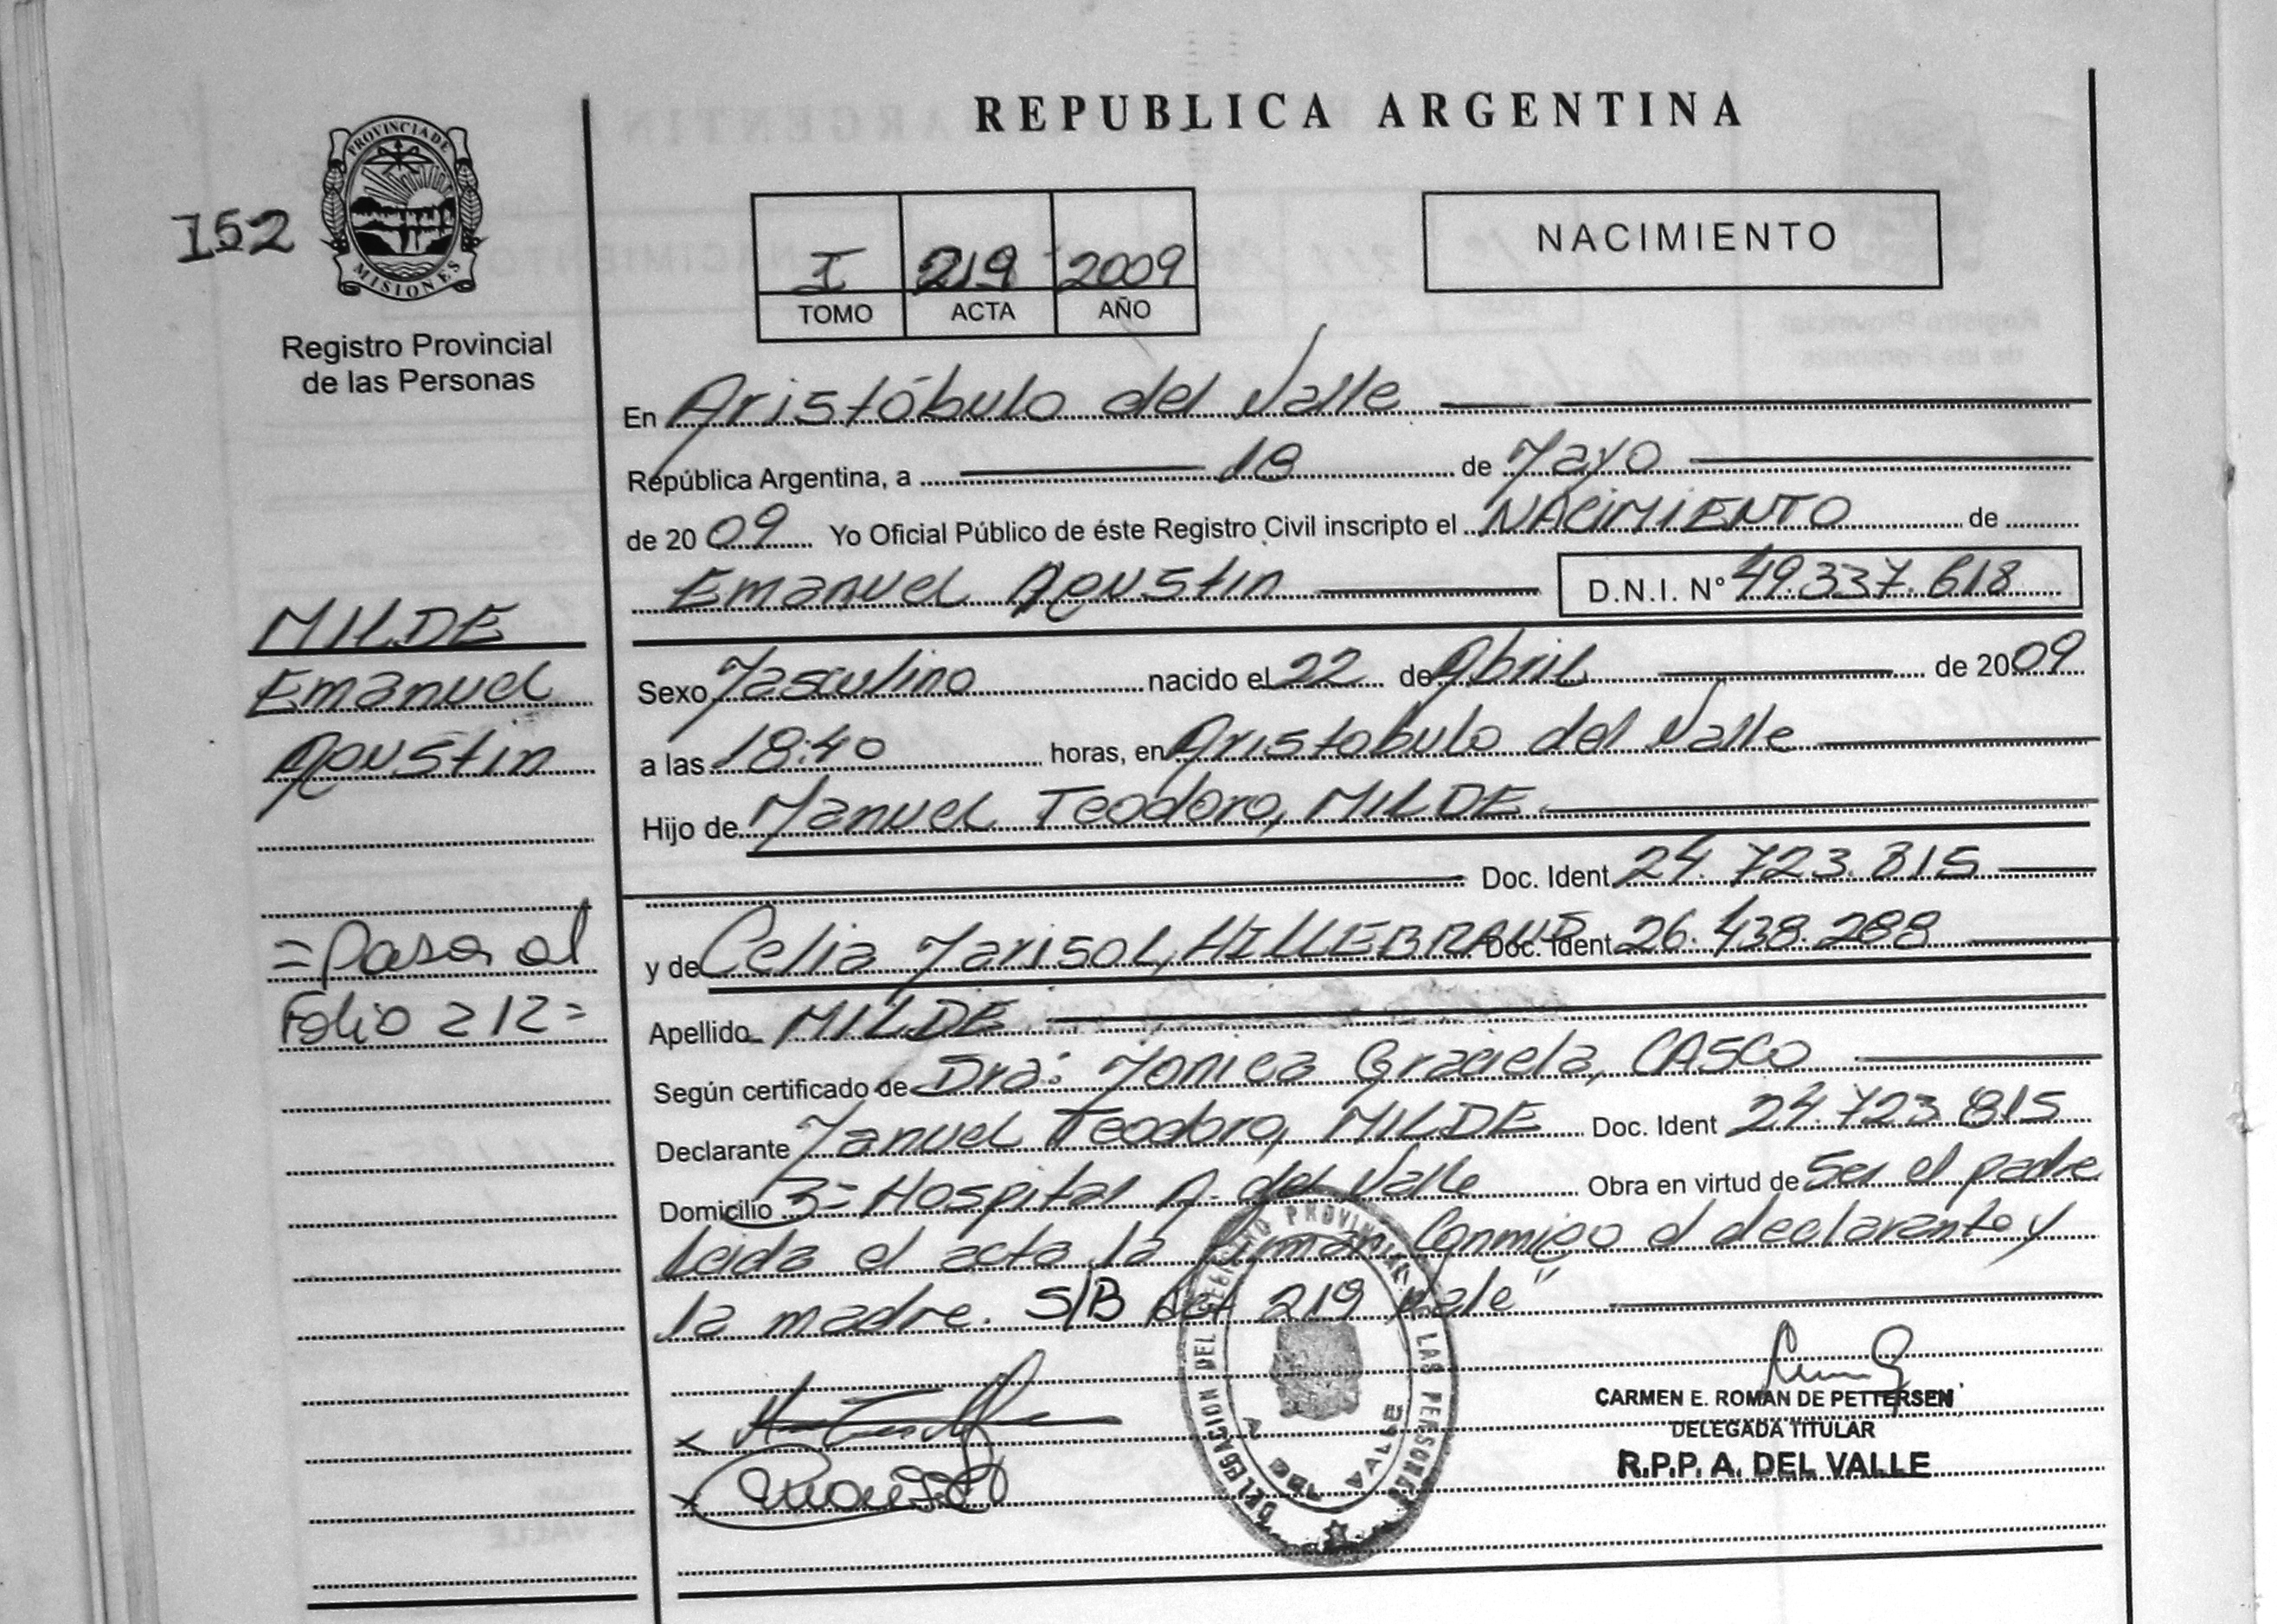 REPUBLICA ARGENTINA
PROVINCIA DE
MISIONES
152
Registro Provincial
de las Personas
I 219 2009
TOMO ACTA AÑO
NACIMIENTO
En Aristóbulo del Valle
República Argentina, a 18 de Mayo
de 2009 Yo Oficial Público de éste Registro Civil inscripto el NACIMIENTO de
Emanuel Agustin D.N.I. N° 49.337.618
MILDE
Emanuel
Agustin
Sexo Masculino nacido el 22 de Abril de 2009
a las 18:40 horas, en Aristobulo del Valle
Hijo de Manuel Teodoro, MILDE
Doc. Ident 24.723.815
y de Celia Marisol, HILLEBRAND Doc. Ident 26.438.288
=Pasa al
Folio 212=
Apellido MILDE
Según certificado de Dra: Monica Graciela, CASCO
Declarante Manuel Teodoro, MILDE Doc. Ident 24.723.815
Domicilio B= Hospital A. del Valle Obra en virtud de Ser el padre
Leida el acta la firman Conmigo el declarante y
la madre. S/B 219 Vale"
DELEGACION DEL REGISTRO PROVINCIAL LAS PERSONAS
A. DEL VALLE
CARMEN E. ROMAN DE PETTERSEN
DELEGADA TITULAR
R.P.P. A. DEL VALLE